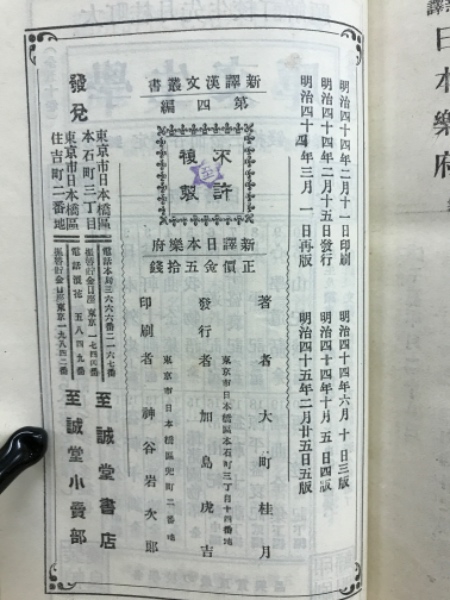 日本樂府
明治四十四年二月十一日印刷
明治四十四年二月十五日發行
明治四十四年三月一日再版
明治四十四年六月十日三版
明治四十四年十月五日四版
明治四十五年二月廿五日五版
新譯漢文叢書
第四編
不許
複製
新譯日本樂府
正價金五拾錢
著者 大町桂月
東京市日本橋區本石町三丁目十四番地
發行者 加島虎吉
東京市日本橋區兜町二番地
印刷者 神谷岩次郎
發兌
東京市日本橋區
本石町三丁目
至誠堂書店
東京市日本橋區
住吉町二番地
電話浪花 五八四九番
至誠堂小賣部